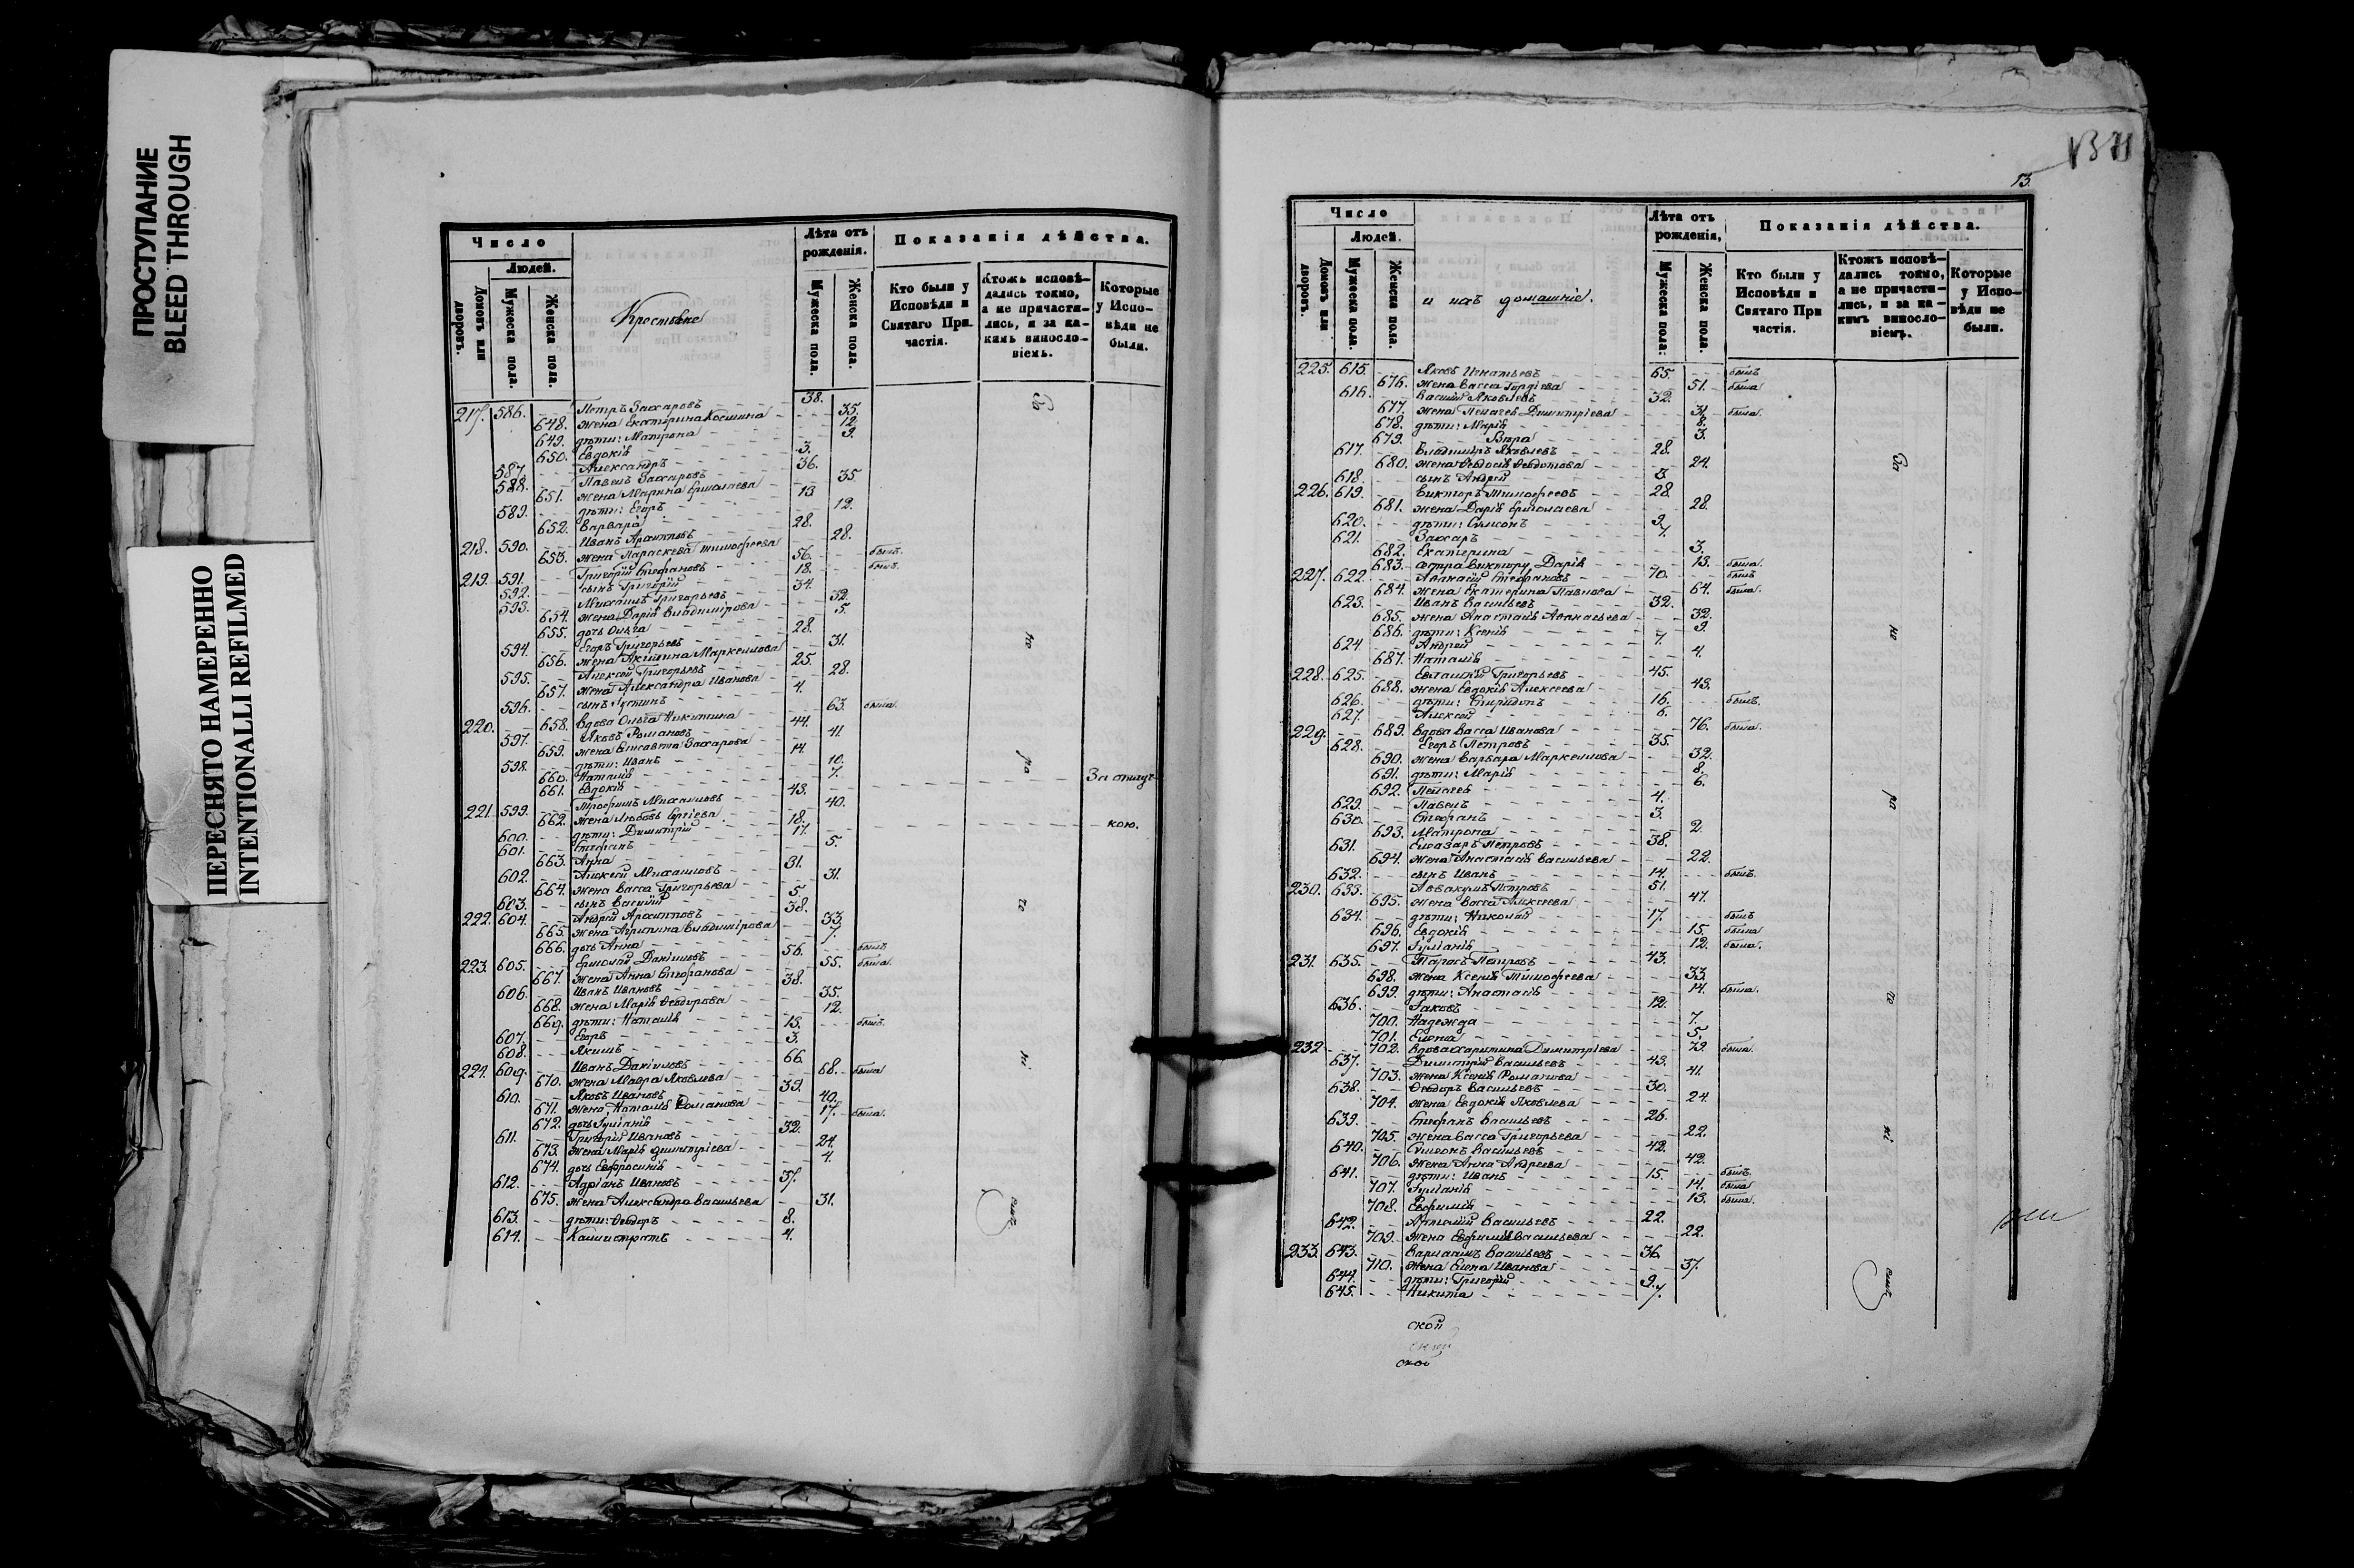 ПРОСТУПАНИЕ
BLEED THROUGH
ПЕРЕСНЯТО НАМЕРЕННО
INTENTIONALLI REFILMED
Число
Людей.
Домовъ или дворовъ.
Мужеска пола.
Женска пола.
Крестьяне
Лѣта отъ рожденія.
Мужеска пола.
Женска пола.
Показанія дѣйства.
Кто были у Исповѣди и Святаго Причастія.
Ктожъ исповѣдались токмо, а не причастились, и за какимъ винословіемъ.
Которые у Исповѣди не были.
217. 586. Петръ Захаровъ 38.
648. жена Екатерина Космина 35.
649. дѣти: Матрона 12.
650. Евдокія 9.
587. Александръ 3.
588. Павелъ Захаровъ 36.
651. жена Марина Ермолаева 35.
589. дѣти: Егоръ 13
652. Варвара 12.
218. 590. Иванъ Архиповъ 28.
653. жена Параскева Тимофеева 28.
219. 591. Григорій Стефановъ 56. былъ.
592. сынъ Григорій 18. былъ.
593. Михаилъ Григорьевъ 34.
654. жена Дарія Владимірова 32.
655. дочь Ольга 5.
594. Егоръ Григорьевъ 28.
656. жена Акилина Маркеллова 31.
595. Алексѣй Григорьевъ 25.
657. жена Александра Иванова 28.
596. сынъ Іустинъ 4.
220. 658. вдова Ольга Никитина 63. была.
597. Яковъ Романовъ 44.
659. жена Елисавета Захарова 41.
598. дѣти: Иванъ 14.
660. Наталія 10.
661. Евдокія 7.
221. 599. Трофимъ Михаиловъ 43. За отлуч-
662. жена Любовь Сергіева 40.
600. дѣти: Димитрій 18. кою.
601. Стефанъ 17.
663. Анна 5.
602. Алексѣй Михаиловъ 31.
664. жена Васса Григорьева 31.
603. сынъ Василій 5.
222. 604. Андрей Архиповъ 38.
665. жена Агрипина Владимірова 33.
666. дочь Анна 7.
223. 605. Ермолай Даніиловъ 56. былъ
667. жена Анна Стефанова 55. была.
606. Иванъ Ивановъ 38.
668. жена Марія Ѳеодорова 35.
669. дѣти: Наталія 12.
607. Егоръ 13. былъ.
608. Якимъ 3.
224. 609. Иванъ Даніиловъ 66.
670. жена Мавра Яковлева 68. была
610. Яковъ Ивановъ 39.
671. жена Наталія Романова 40.
672. дочь Іуліанія 17. была.
611. Григорій Ивановъ 32.
673. жена Марія Димитріева 24.
674. дочь Евфросинія 4.
612. Адріанъ Ивановъ 37.
675. жена Александра Васильева 31.
613. дѣти: Ѳеодоръ 8.
614. Каллистратъ 4.
13.
Число
Людей.
Домовъ или дворовъ.
Мужеска пола.
Женска пола.
и ихъ домашніе.
Лѣта отъ рожденія,
Мужеска пола:
Женска пола.
Показанія дѣйства.
Кто были у Исповѣди и Святаго При частія.
Ктожъ исповѣдались токмо, а не причастились, и за какимъ винословіемъ.
Которые у Исповѣди не были.
225. 615. Яковъ Игнатьевъ 65. былъ
676. жена Васса Гордіева 51. была
616. Василій Яковлевъ 32.
677. жена Пелагея Димитріева 31. была.
678. дѣти: Марія 8.
679. Вѣра 3.
617. Владиміръ Яковлевъ 28.
680. жена Ѳеодосія Ѳеодотова 24.
618. сынъ Андрей 3.
226. 619. Викторъ Тимофеевъ 28.
681. жена Дарія Ермолаева 28.
620. дѣти: Симеонъ 9.
621. Захаръ 7.
682. Екатерина 3.
683. сестра Виктору, Дарія 13. была.
227. 622. Аѳанасій Стефановъ 70. былъ
684. жена Екатерина Павлова 64. была.
623. Иванъ Васильевъ 32.
685. жена Анастасія Аѳанасьева 32.
686. дѣти: Ксенія 9.
624. Андрей 7.
687. Наталія 4.
228. 625. Евлампій Григорьевъ 45.
688. жена Евдокія Алексеева 43.
626. дѣти: Спиридонъ 16. былъ.
627. Алексѣй 6.
229. 689. вдова Васса Иванова 76. была.
628. Егоръ Петровъ 35.
690. жена Варвара Маркеллова 32.
691. дѣти: Марія 8.
692. Пелагея 6.
629. Павелъ 4.
630. Стефанъ 3.
693. Матрона 2.
631. Елеазаръ Петровъ 38.
694. жена Анастасія Васильева 22.
632. сынъ Иванъ 14. былъ.
230. 633. Аввакумъ Петровъ 51.
695. жена Васса Алексеева 47.
634. дѣти: Николай 17. былъ
696. Евдокія 15. была
697. Іуліанія 12. была.
231. 635. Тарасъ Петровъ 43.
698. жена Ксенія Тимофеева 33.
699. дѣти: Анастасія 14. была.
636. Іаковъ 12.
700. Надежда 7.
701. Елена 5.
232. 702. вдова Харитина Димитріева 79. была.
637. Димитрій Васильевъ 43.
703. жена Ксенія Романова 41.
638. Ѳеодоръ Васильевъ 30.
704. жена Евдокія Яковлева 24.
639. Стефанъ Васильевъ 26.
705. жена Васса Григорьева 22.
640. Симеонъ Васильевъ 42.
706. жена Анна Андреева 42.
641. дѣти: Иванъ 15. былъ.
707. Іуліанія 14. была
708. Евфимія 13. была.
642. Артемій Васильевъ 22.
709. жена Евфимія Васильева 22.
233. 643. Варлаамъ Васильевъ 36.
710. жена Елена Иванова 37.
644. дѣти: Григорій 9.
645. Никита 7.
ской
ской